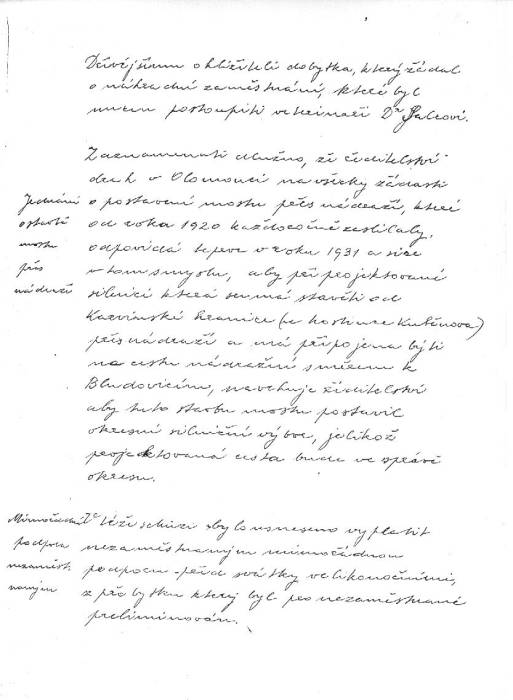 Dřívějšímu ohližiteli dobytka, který žádal
o náhradní zaměstnání, které byl
nucen postoupiti veterináři Dr
Zaznamenati dlužno, že ředitelství
drah v Olomouci na všecky žádosti
o postavení mostu přes nádraží, které
od roku 1920 každoročně zesílaly,
odpovídá teprve v roku 1931 a sice
v tom smyslu, aby při projektované
silnici která se má stavěti od
Karvinské hranice (u hostince Kučínova)
přes nádraží a má připojena býti
na cestu nádražní směrem k
Bludovicím, navrhuje ředitelství
aby tuto stavbu mostu postavil
okresní silniční výbor, jelikož
projektovaná cesta bude ve správě
okresu.
Jednání
o stavbě
mostu
přes
nádraží
V téže schůzi bylo usneseno vyplatit
nezaměstnaným mimořádnou
podporu před svátky velikonočními,
z přebytku který byl pro nezaměstnané
preliminován.
Mimořádná
podpora
nezaměst
naným